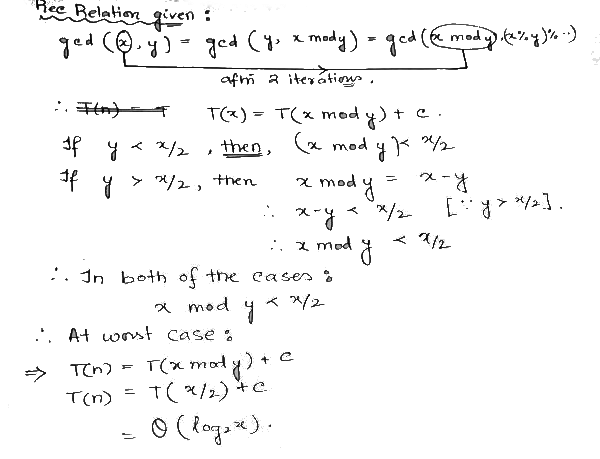 Rec Relation given :
gcd (x, y) = gcd (y, x mod y) = gcd ((x mod y), (x % y) % ..)
after 2 iterations.
∴ T(n) = T T(x) = T(x mod y) + c .
If y < x/2 , then, (x mod y) < x/2
If y > x/2, then x mod y = x - y
∴ x - y < x/2 [∵ y > x/2].
∴ x mod y < x/2
∴ In both of the cases :
x mod y < x/2
∴ At worst case :
⇒ T(n) = T(x mod y) + c
T(n) = T(x/2) + c
= O (log₂x).